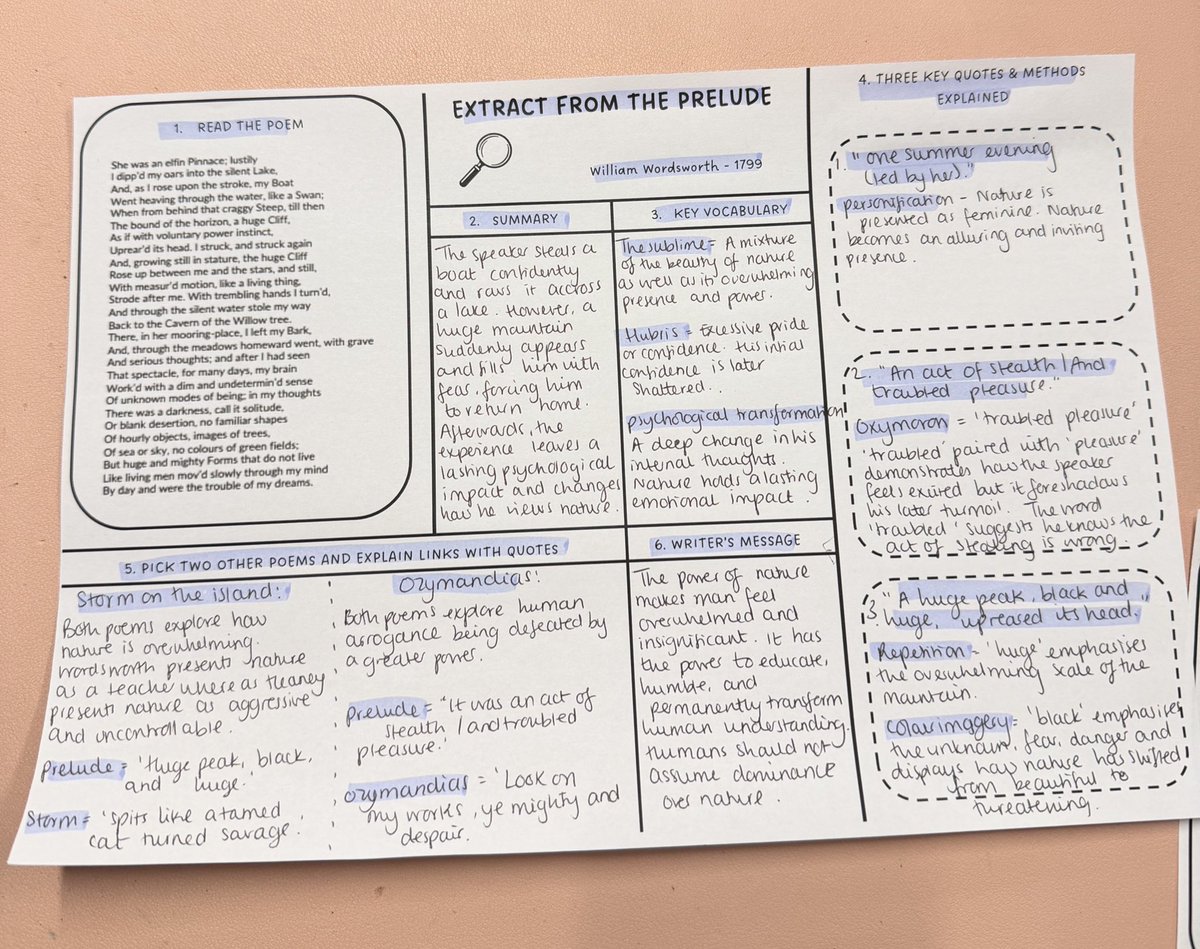 1. READ THE POEM
She was an elfin Pinnace; lustily
I dipp'd my oars into the silent Lake,
And, as I rose upon the stroke, my Boat
Went heaving through the water, like a Swan;
When from behind that craggy Steep, till then
The bound of the horizon, a huge Cliff,
As if with voluntary power instinct,
Uprear'd its head. I struck, and struck again
And, growing still in stature, the huge Cliff
Rose up between me and the stars, and still,
With measur'd motion, like a living thing,
Strode after me. With trembling hands I turn'd,
And through the silent water stole my way
Back to the Cavern of the Willow tree.
There, in her mooring-place, I left my Bark,
And, through the meadows homeward went, with grave
And serious thoughts; and after I had seen
That spectacle, for many days, my brain
Work'd with a dim and undetermin'd sense
Of unknown modes of being; in my thoughts
There was a darkness, call it solitude,
Or blank desertion, no familiar shapes
Of hourly objects, images of trees,
Of sea or sky, no colours of green fields;
But huge and mighty Forms that do not live
Like living men mov'd slowly through my mind
By day and were the trouble of my dreams.
EXTRACT FROM THE PRELUDE
William Wordsworth - 1799
2. SUMMARY
The speaker steals a
boat confidently
and rows it across
a lake. However, a
huge mountain
suddenly appears
and fills him with
fear, forcing him
to return home.
Afterwards, the
experience leaves a
lasting psychological
impact and changes
how he views nature.
3. KEY VOCABULARY
The sublime = A mixture
of the beauty of nature
as well as its overwhelming
presence and power.
Hubris = Excessive pride
or confidence. His initial
confidence is later
shattered.
psychological transformation
A deep change in his
internal thoughts.
Nature holds a lasting
emotional impact.
4. THREE KEY QUOTES & METHODS
EXPLAINED
1. "one summer evening
(led by her)."
personification - Nature is
presented as feminine. Nature
becomes an alluring and inviting
presence.
2. "An act of stealth / And
troubled pleasure."
Oxymoron = 'troubled pleasure'
'troubled paired with 'pleasure'
demonstrates how the speaker
feels excited but it foreshadows
his later turmoil. The word
'troubled' suggests he knows the
act of stealing is wrong.
3. "A huge peak, black and
huge, upreased its head.
Repetition = 'huge' emphasises
the overwhelming scale of the
mountain.
Colour imagery = 'black' emphasises
the unknown, fear, danger and
displays how nature has shifted
from beautiful to
threatening.
5. PICK TWO OTHER POEMS AND EXPLAIN LINKS WITH QUOTES
Storm on the island:
Both poems explore how
nature is overwhelming.
Wordsworth presents nature
as a teacher where as Heaney
presents nature as aggressive
and uncontrollable.
Prelude = 'Huge peak, black,
and huge.'
Storm = 'spits like a tamed
cat turned savage.
Ozymandias:
Both poems explore human
arrogance being defeated by
a greater power.
prelude = "It was an act of
stealth / and troubled
pleasure.'
ozymandias = 'Look on
my works, ye mighty and
despair.
6. WRITER'S MESSAGE
The power of nature
makes man feel
overwhelmed and
insignificant. It has
the power to educate,
humble, and
permanently transform
human understanding.
Humans should not
assume dominance
over nature.